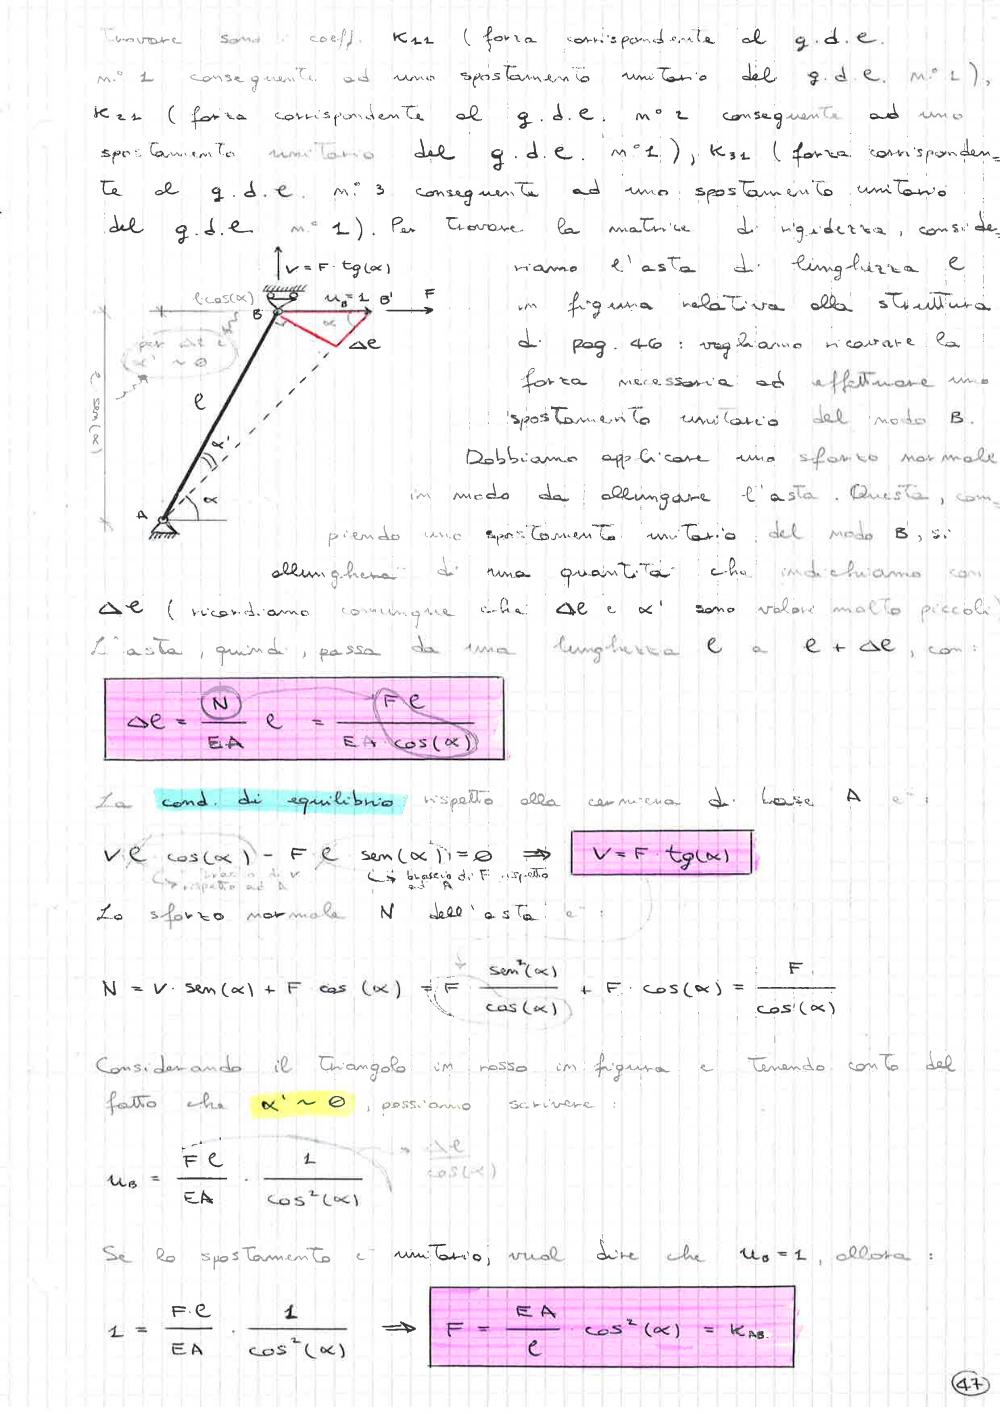 Trovare sono i coeff. K11 (forza corrispondente al g.d.e.
n.° 1 conseguente ad uno spostamento unitario del g.d.e. n.° 1),
K21 (forza corrispondente al g.d.e. n.° 2 conseguente ad uno
spostamento unitario del g.d.e. n.° 1), K31 (forza corrisponden=
te al g.d.e. n.° 3 conseguente ad uno spostamento unitario
del g.d.e. n.° 1). Per trovare la matrice di rigidezza, conside=
riamo l'asta di lunghezza l
in figura relativa alla struttura
di pag. 46 : vogliamo ricavare la
forza necessaria ad effettuare uno
spostamento unitario del nodo B.
Dobbiamo applicare uno sforzo normale
in modo da allungare l'asta. Questa, com=
piendo uno spostamento unitario del nodo B, si
allungherà di una quantità che indichiamo con
Δl (ricordiamo comunque che Δl e α' sono valori molto piccoli)
L'asta, quindi, passa da una lunghezza l a l + Δl, con:
V = F · tg(α)
l cos(α)
uB = 1
B
B'
F
α
Δl
per Δl e
α' ~ 0
l sen(α)
l
α'
A
α
Δl = N/EA l = F l / EA cos(α)
La cond. di equilibrio rispetto alla cerniera di base A è:
V l cos(α) - F l sen(α) = 0 ⇒ V = F · tg(α)
↳ braccio di V rispetto ad A
↳ braccio di F rispetto ad A
Lo sforzo normale N dell'asta è:
N = V · sen(α) + F cos(α) = F sen²(α)/cos(α) + F · cos(α) = F/cos(α)
Considerando il triangolo in rosso in figura e tenendo conto del
fatto che α' ~ 0, possiamo scrivere:
uB = F l/EA · 1/cos²(α) → Δl/cos(α)
Se lo spostamento è unitario, vuol dire che uB = 1, allora:
1 = F·l/EA · 1/cos²(α) ⇒ F = EA/l · cos²(α) = KAB.
47